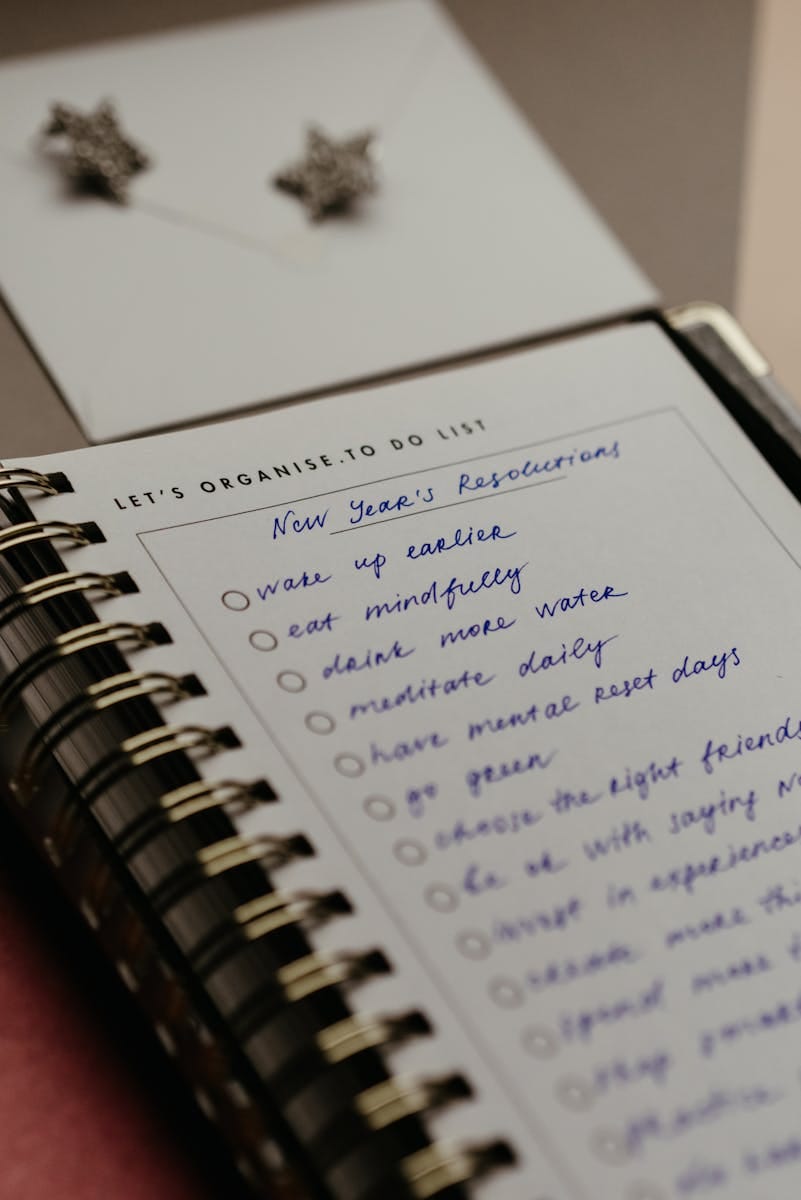 LET'S ORGANISE.TO DO LIST
New Year's Resolutions
wake up earlier
eat mindfully
drink more water
meditate daily
have mental reset days
go green
choose the right friends
be ok with saying no
invest in experiences
create more
spend more
stop
practice